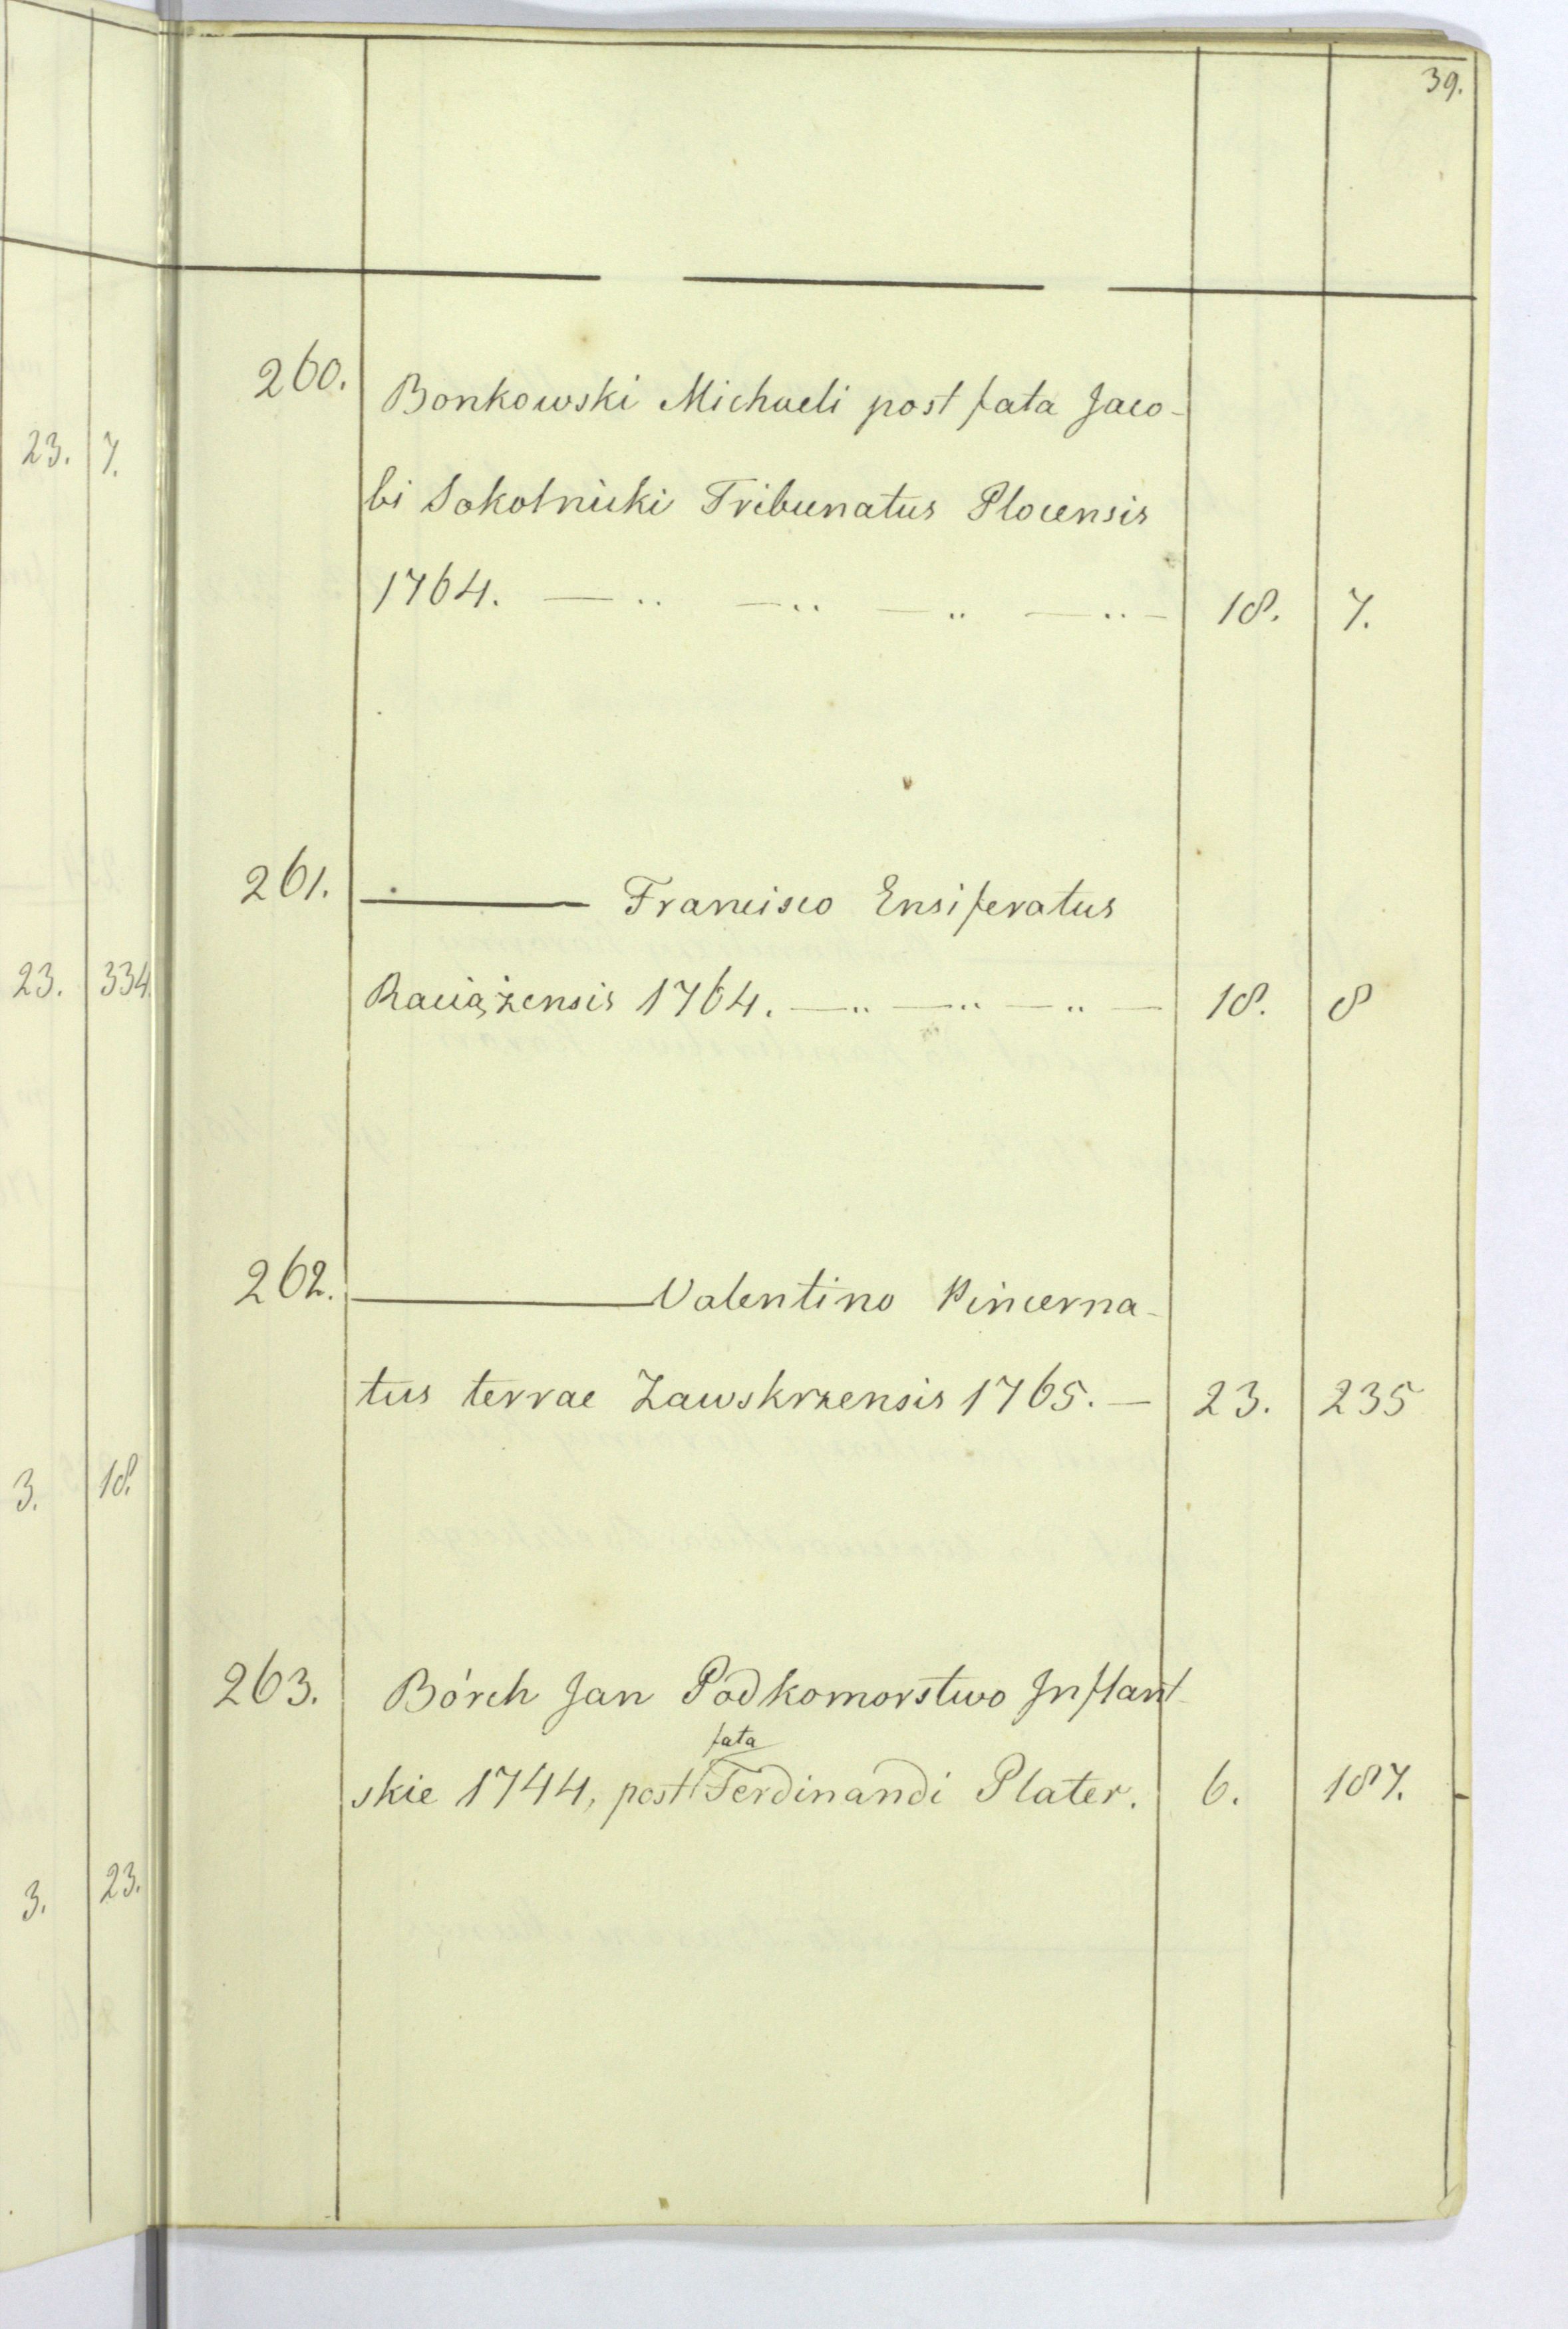 39.
260. Bonkowski Michaeli post fata Jaco-
bi Sokolnicki Tribunatus Plocensis
1764. — .. — .. — .. — .. — 18. 7.
261. ——— Francisco Ensiferatus
Raciążensis 1764. — .. — .. — .. — 18. 8
262. ——— Valentino Pincerna-
tus terrae Zawskrzensis 1765. — 23. 235
263. Bórch Jan Podkomorstwo Inflant-
fata
skie 1744, post Ferdinandi Plater. 6. 187.
23. 7.
23. 334.
3. 18.
3. 23.